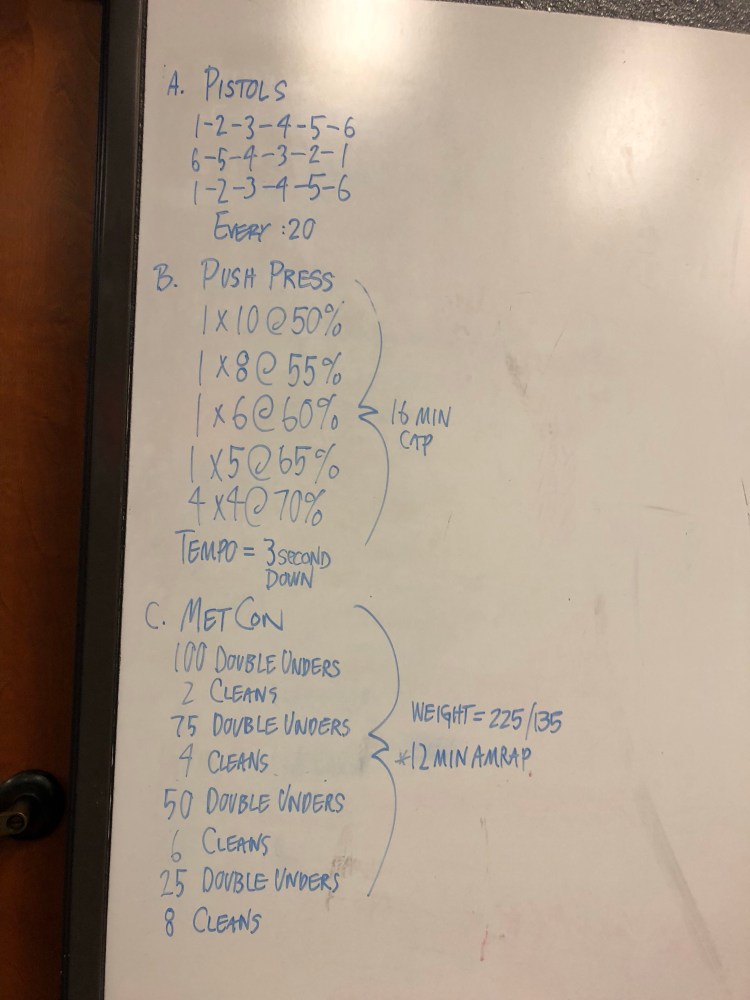 A. PISTOLS
1-2-3-4-5-6
6-5-4-3-2-1
1-2-3-4-5-6
EVERY :20
B. PUSH PRESS
1 x 10 @ 50%
1 x 8 @ 55%
1 x 6 @ 60%
1 x 5 @ 65%
4 x 4 @ 70%
16 MIN
CAP
TEMPO = 3 SECOND
DOWN
C. METCON
100 DOUBLE UNDERS
2 CLEANS
75 DOUBLE UNDERS
4 CLEANS
50 DOUBLE UNDERS
6 CLEANS
25 DOUBLE UNDERS
8 CLEANS
WEIGHT = 225/135
*12 MIN AMRAP